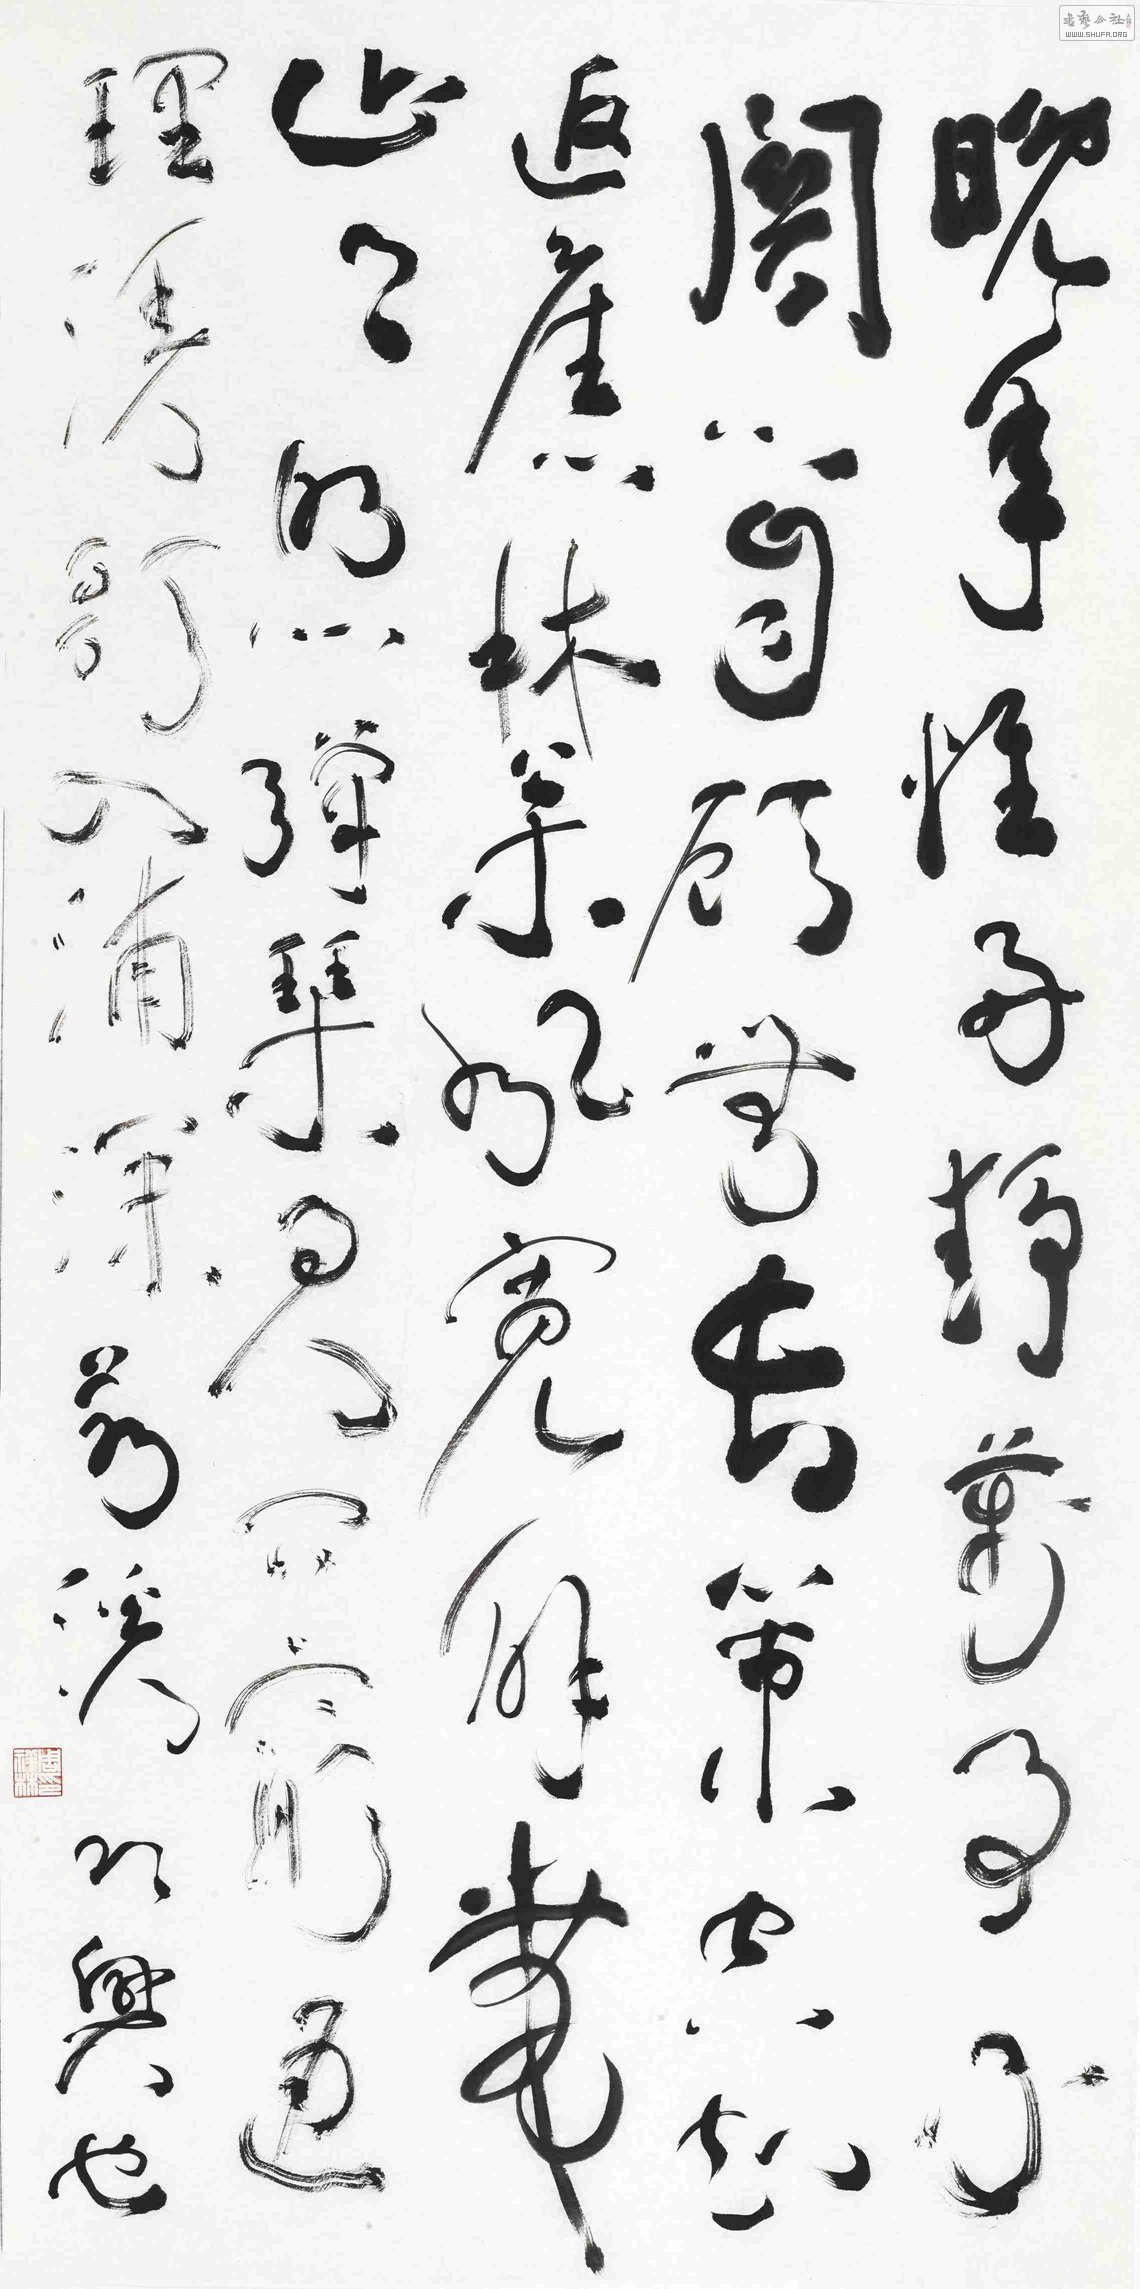 晚年惟好靜萬事不
關心自顧無長策空知
返舊林松風寬解帶
山月照彈琴君問窮通
理漁歌入浦深 興也
書藝公社
WWW.SHUFA.ORG